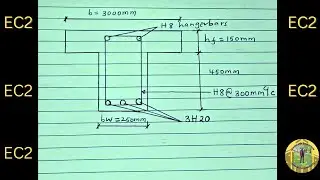 EC2
EC2
b = 3000mm
H8 hangerbars
hf = 150mm
EC2
EC2
450mm
H8@300mm c/c
EC2
EC2
bw = 250mm
3H20
EC2